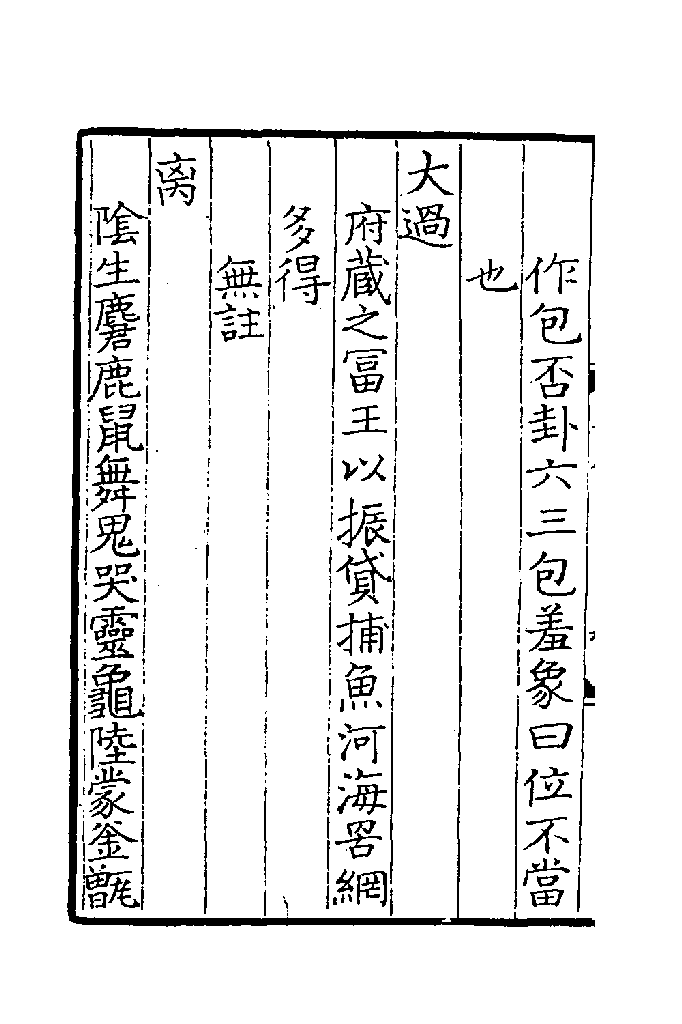 作包否卦六三包羞象曰位不當
也
大過
府藏之冨王以振貸捕魚河海罟網
多得
無註
离
陰生麏鹿鼠舞鬼哭靈龜陸䝉釜甑